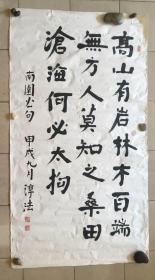 高山有岩林木百端
無方人莫知之桑田
滄海何必太拘
南園出句 甲戌九月淳法